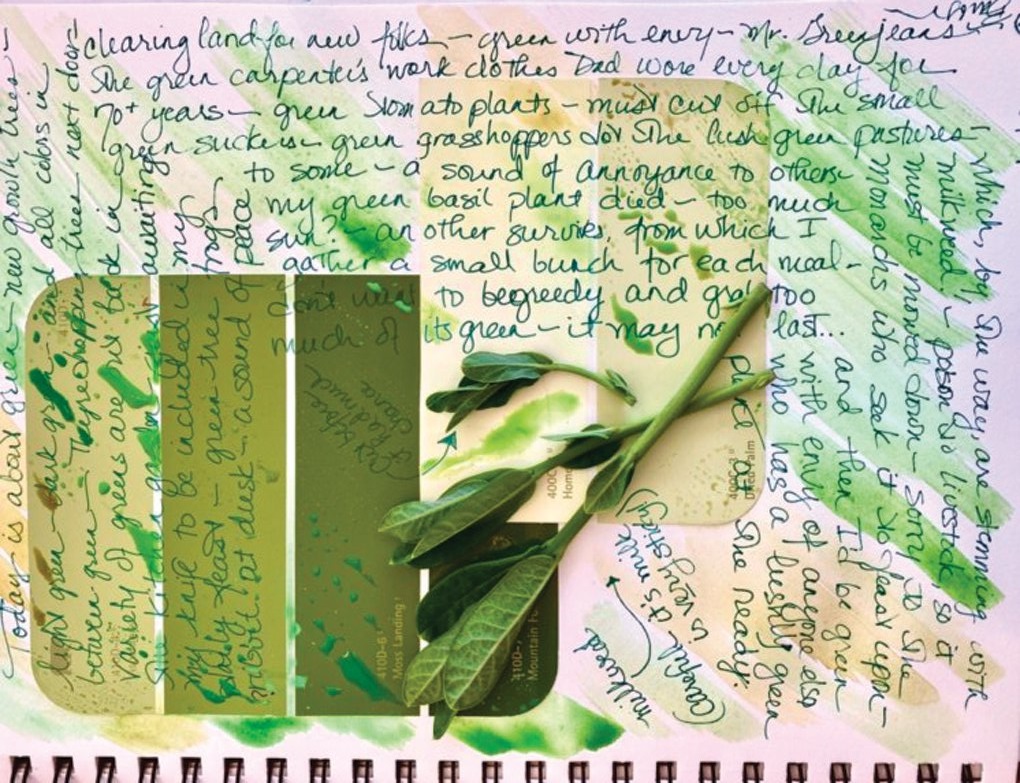 Today is about green - new growth trees -
light green - dark green - and all colors in
between green - trees next door -
variety of greens are not back in
awaiting my
tiny knife to be included in my
daily feast - green tree frogs
ribbit at dusk - a sound of peace
to some - a sound of annoyance to others
clearing land for new folks - green with envy - Mr. Greenjeans -
The green carpenter's work clothes Dad wore every day for
70+ years - green tomato plants - must cut off the small
green suckers - green grasshoppers dot the lush green pastures -
my green basil plant died - too much
sun? - another survives from which I
gather a small bunch for each meal -
don't want to be greedy and grab too
much of its green - it may not last...
and then I'd be green
with envy of anyone else
who has a lush green
plant at the ready.
which, by the way, are stemming with
milkweed! - poison to livestock, so it
must be mowed down - sorry to the
monarchs who seek it to feast upon -
milkweed
(careful it's milk
is very sticky)
4100-6
Moss Landing
4100-
Mountain
400C-2
Hom
400C-3
Dried Palm